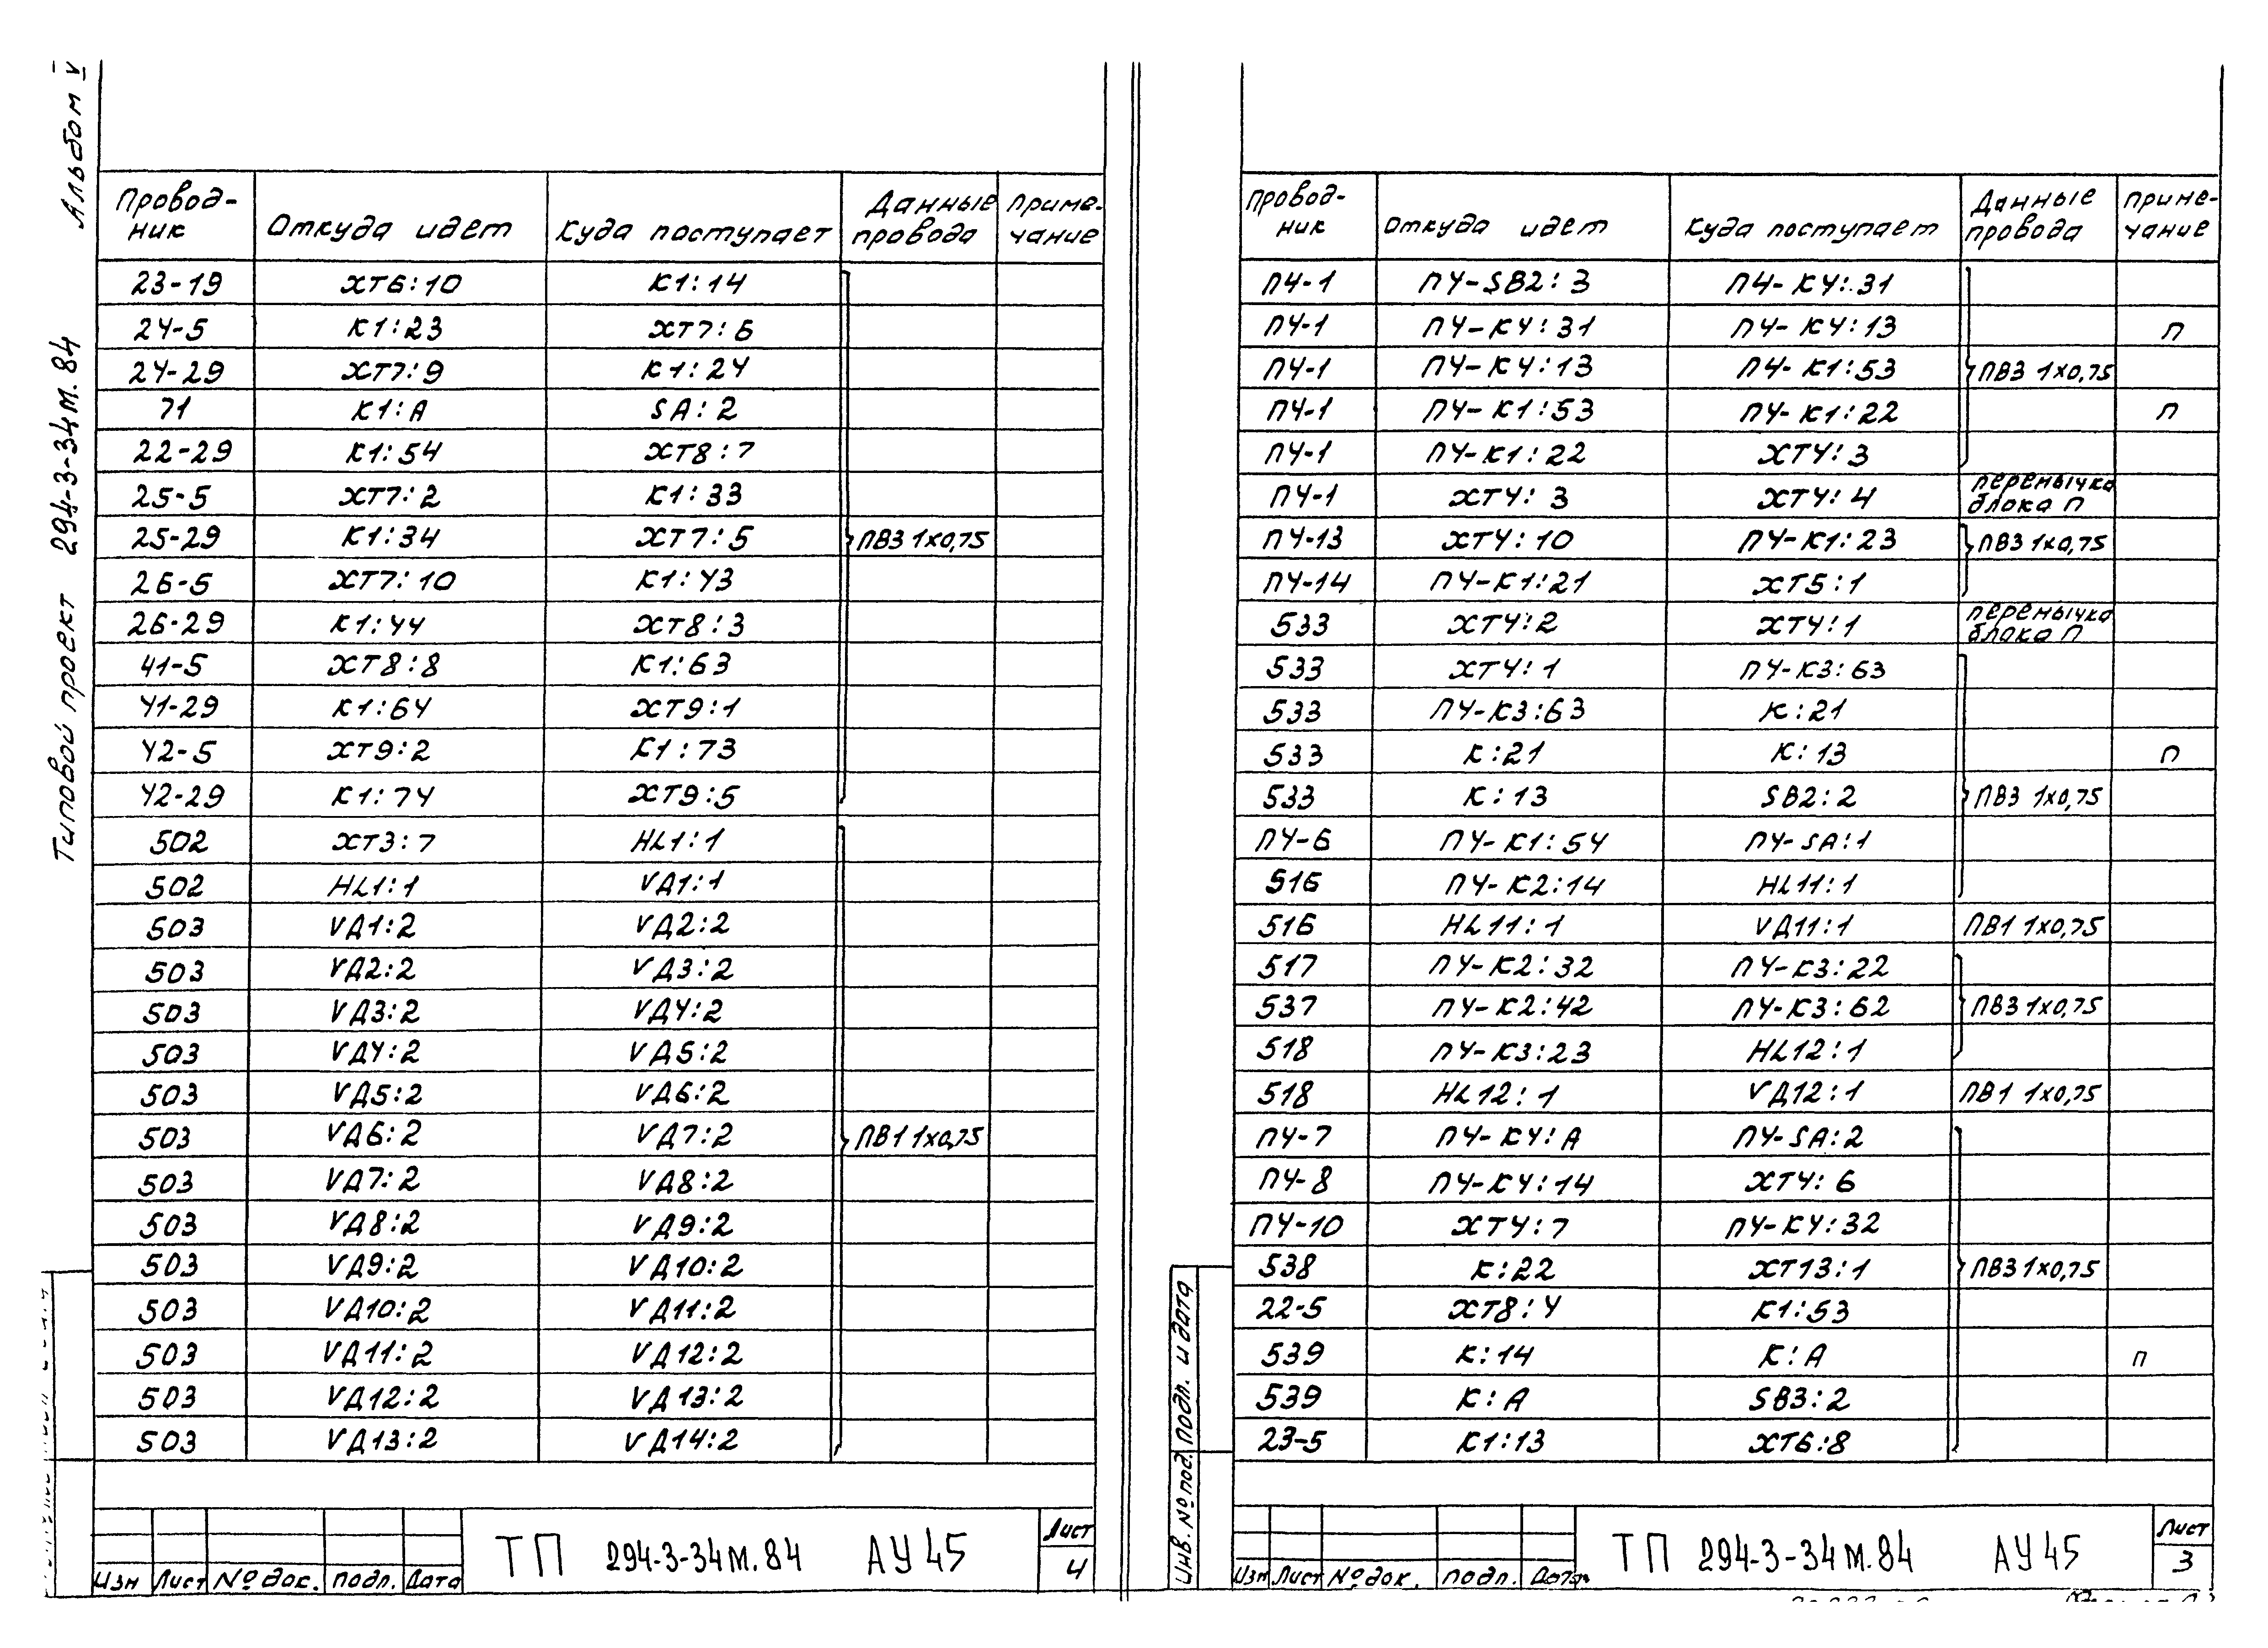 Альбом V
Типовой проект 294-3-34м.84
Провод-ник | Откуда идет | Куда поступает | Данные провода | Приме-чание
23-19 | XT6:10 | K1:14
24-5 | K1:23 | XT7:6
24-29 | XT7:9 | K1:24
71 | K1:A | SA:2
22-29 | K1:54 | XT8:7
25-5 | XT7:2 | K1:33
25-29 | K1:34 | XT7:5 | ПВ3 1х0,75
26-5 | XT7:10 | K1:43
26-29 | K1:44 | XT8:3
41-5 | XT8:8 | K1:63
41-29 | K1:64 | XT9:1
42-5 | XT9:2 | K1:73
42-29 | K1:74 | XT9:5
502 | XT3:7 | HL1:1
502 | HL1:1 | VД1:1
503 | VД1:2 | VД2:2
503 | VД2:2 | VД3:2
503 | VД3:2 | VД4:2
503 | VД4:2 | VД5:2
503 | VД5:2 | VД6:2
503 | VД6:2 | VД7:2 | ПВ1 1х0,75
503 | VД7:2 | VД8:2
503 | VД8:2 | VД9:2
503 | VД9:2 | VД10:2
503 | VД10:2 | VД11:2
503 | VД11:2 | VД12:2
503 | VД12:2 | VД13:2
503 | VД13:2 | VД14:2
Изм Лист № док. подп. Дата
ТП 294-3-34м.84 АУ45
Лист
4
Провод-ник | Откуда идет | Куда поступает | Данные провода | Приме-чание
П4-1 | П4-SB2:3 | П4-K4:31
П4-1 | П4-K4:31 | П4-K4:13 | П
П4-1 | П4-K4:13 | П4-K1:53 | ПВ3 1х0,75
П4-1 | П4-K1:53 | П4-K1:22 | П
П4-1 | П4-K1:22 | XT4:3
П4-1 | XT4:3 | XT4:4 | перемычка блока П
П4-13 | XT4:10 | П4-K1:23 | ПВ3 1х0,75
П4-14 | П4-K1:21 | XT5:1
533 | XT4:2 | XT4:1 | перемычка блока П
533 | XT4:1 | П4-K3:63
533 | П4-K3:63 | K:21
533 | K:21 | K:13 | П
533 | K:13 | SB2:2 | ПВ3 1х0,75
П4-6 | П4-K1:54 | П4-SA:1
516 | П4-K2:14 | HL11:1
516 | HL11:1 | VД11:1 | ПВ1 1х0,75
517 | П4-K2:32 | П4-K3:22
537 | П4-K2:42 | П4-K3:62 | ПВ3 1х0,75
518 | П4-K3:23 | HL12:1
518 | HL12:1 | VД12:1 | ПВ1 1х0,75
П4-7 | П4-K4:A | П4-SA:2
П4-8 | П4-K4:14 | XT4:6
П4-10 | XT4:7 | П4-K4:32
538 | K:22 | XT13:1 | ПВ3 1х0,75
22-5 | XT8:4 | K1:53
539 | K:14 | K:A | П
539 | K:A | SB3:2
23-5 | K1:13 | XT6:8
Инв. № подл. Подп. и дата
Изм Лист № док. подп. Дата
ТП 294-3-34м.84 АУ45
Лист
3